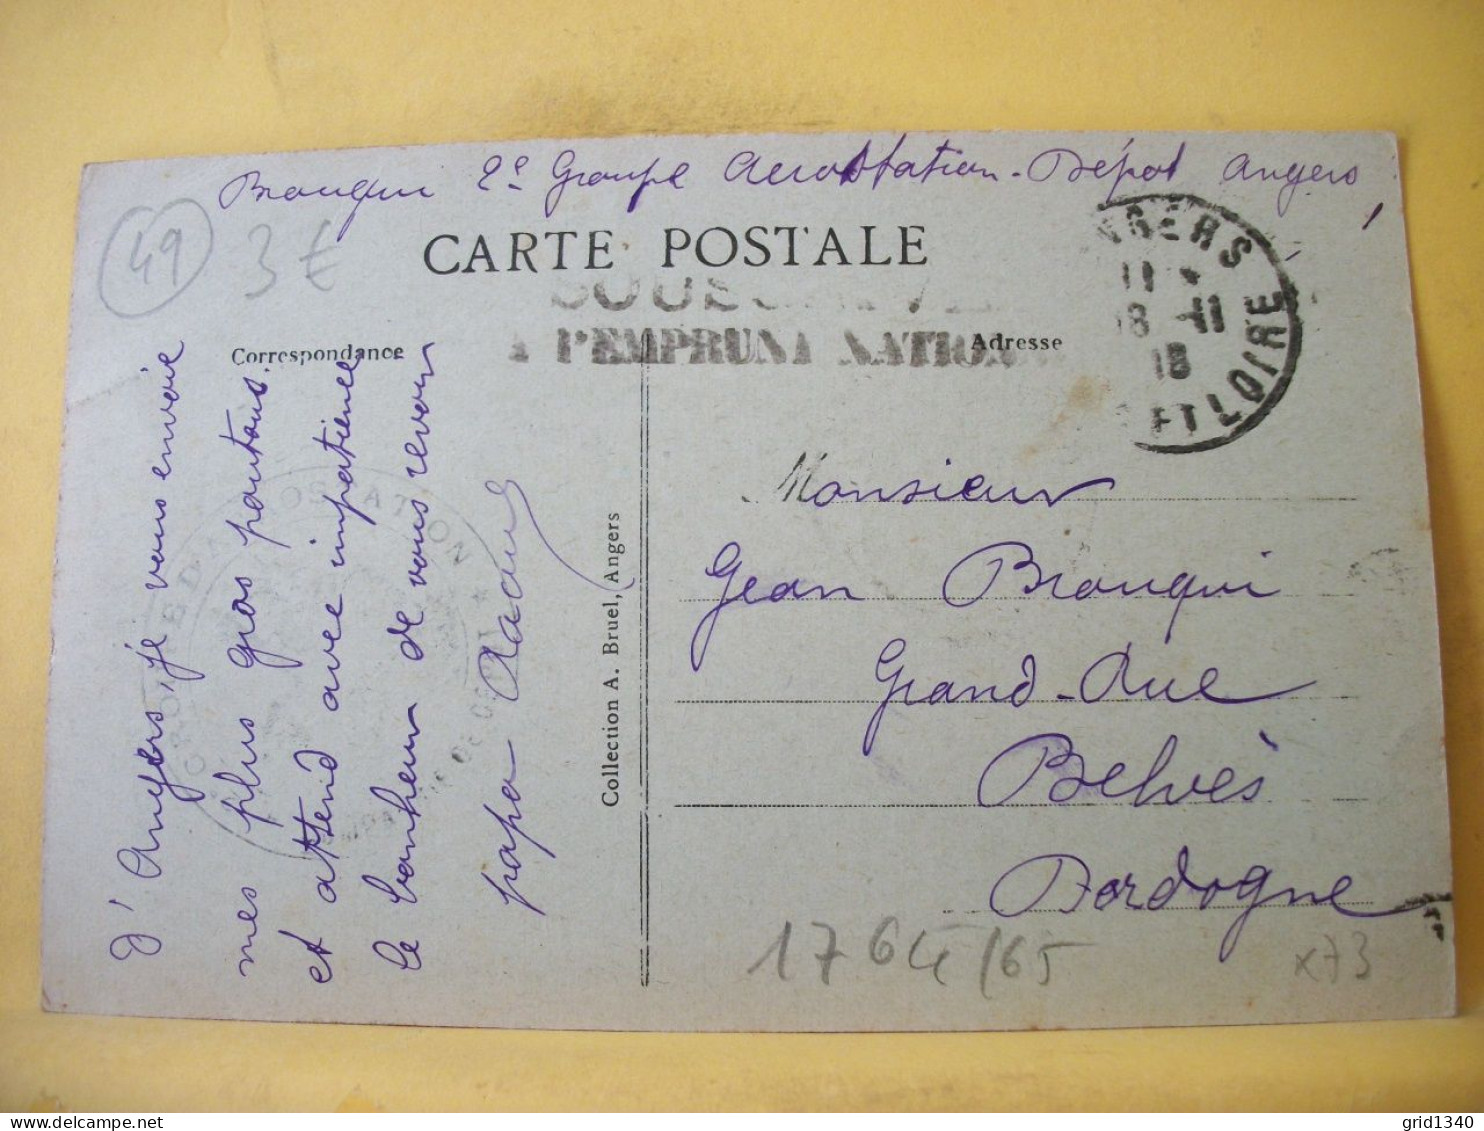 Brouqui 2e Groupe Aerostation - Dépot Angers
49
3 €
CARTE POSTALE
A L'EMPRUNT NATION
Correspondance
Adresse
ANGERS
11
18 -11
18
ET LOIRE
D'Angers, je vous envoie
mes plus gros poutous
et attend avec impatience
le bonheur de vous revoir
papa
Collection A. Bruel, Angers
Monsieur
Jean Brouqui
Grand-Rue
Belvès
Dordogne
1764/65
x73
grid1340